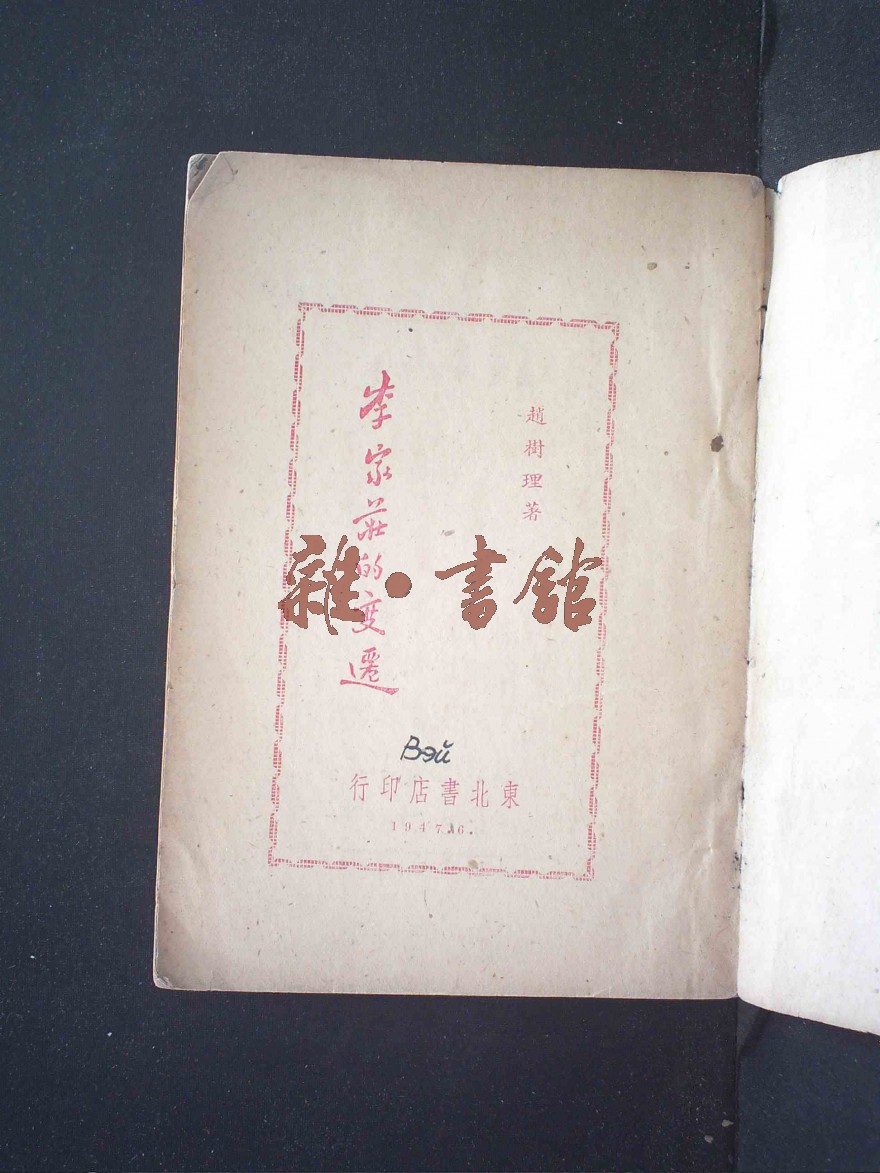 趙樹理著
李家莊的变遷
雜·書館
Вэй
東北書店印行
1947.6.